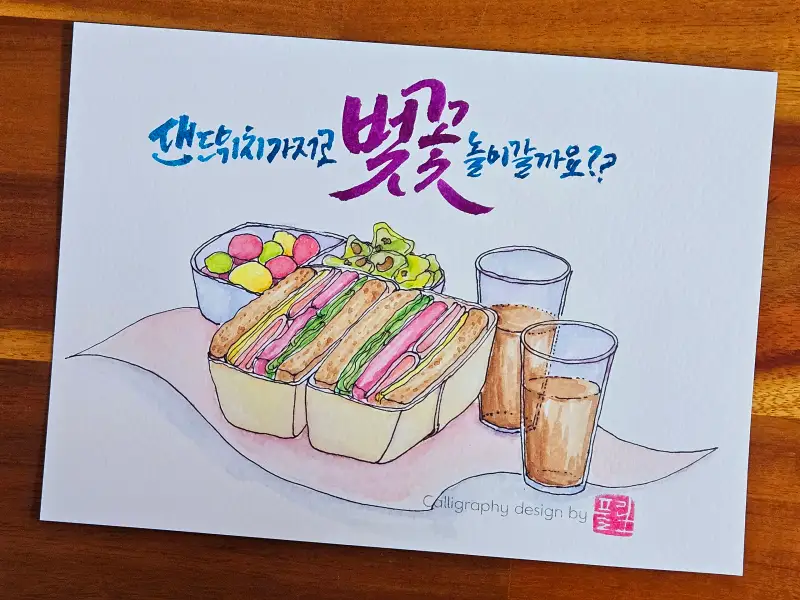 샌드위치가지고 벚꽃 놀이갈까요??
Calligraphy design by